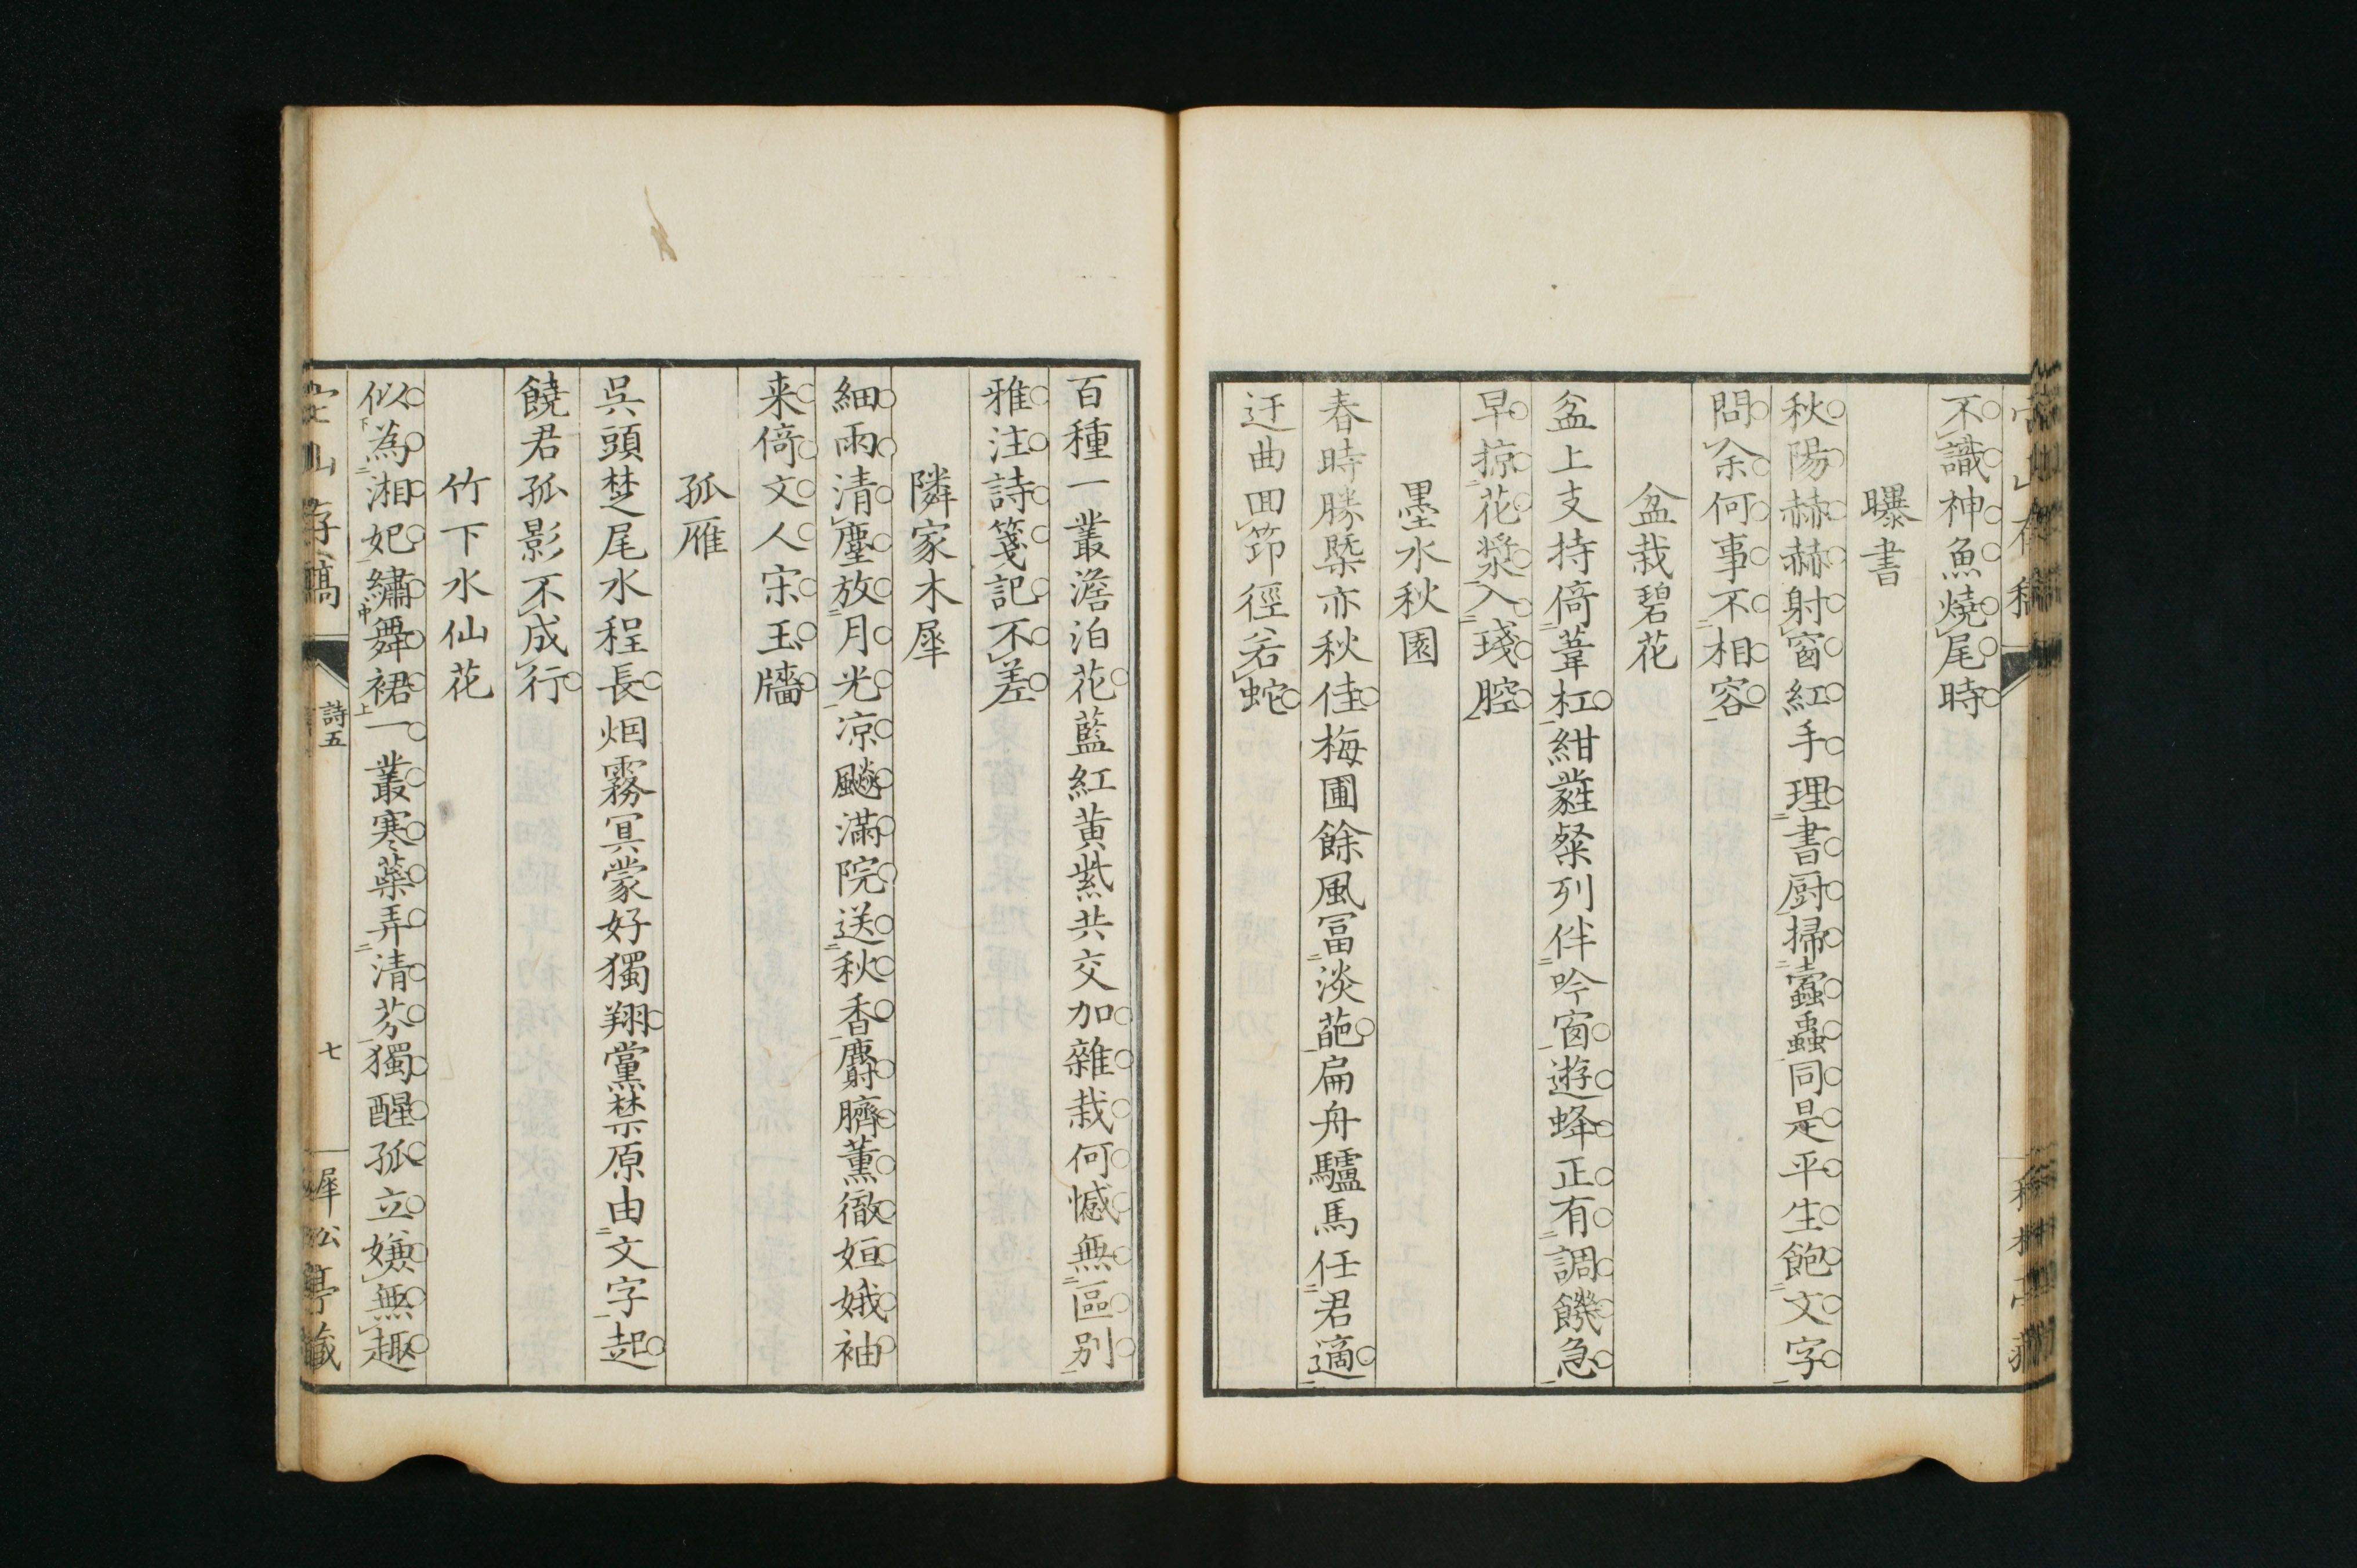 不識神魚燒尾時
曝書
秋陽赫赫射窗紅手理書厨掃蠧蟲同是平生飽文字
問余何事不相容
盆栽碧花
盆上支持倚葦杠紺蕤粲列伴吟窗遊蜂正有調饑急
早掠花漿入琖腔
墨水秋園
春時勝槩亦秋佳梅圃餘風冨淡葩扁舟驢馬任君適
迂曲回節徑若蛇
百種一叢澹泊花藍紅黄紫共交加雜栽何憾無區别
雅注詩箋記不差
隣家木犀
細雨清塵放月光凉飈滿院送秋香麝臍薫徹姮娥袖
来倚文人宋玉牆
孤雁
呉頭楚尾水程長烟霧冥蒙好獨翔黨禁原由文字起
饒君孤影不成行
竹下水仙花
似為湘妃繡舞裙一叢寒蘂弄清芬獨醒孤立嫌無趣
存稿
詩五
七
犀松亭藏